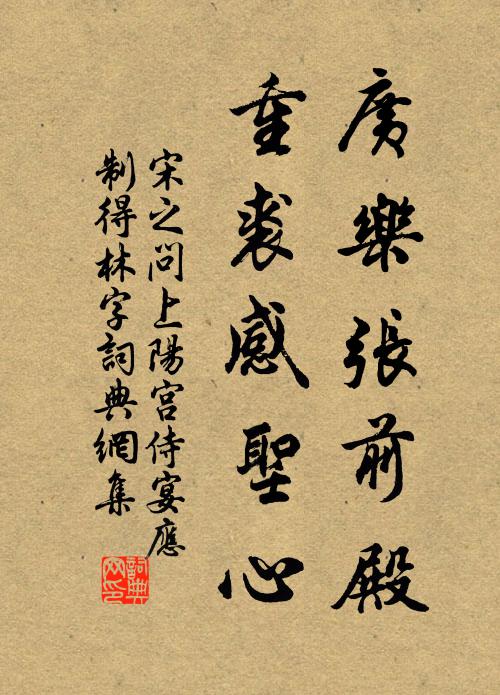 廣樂張前殿
重裘感聖心
宋之問上陽宮侍宴應
制得林字詞典網集
詞典
网印